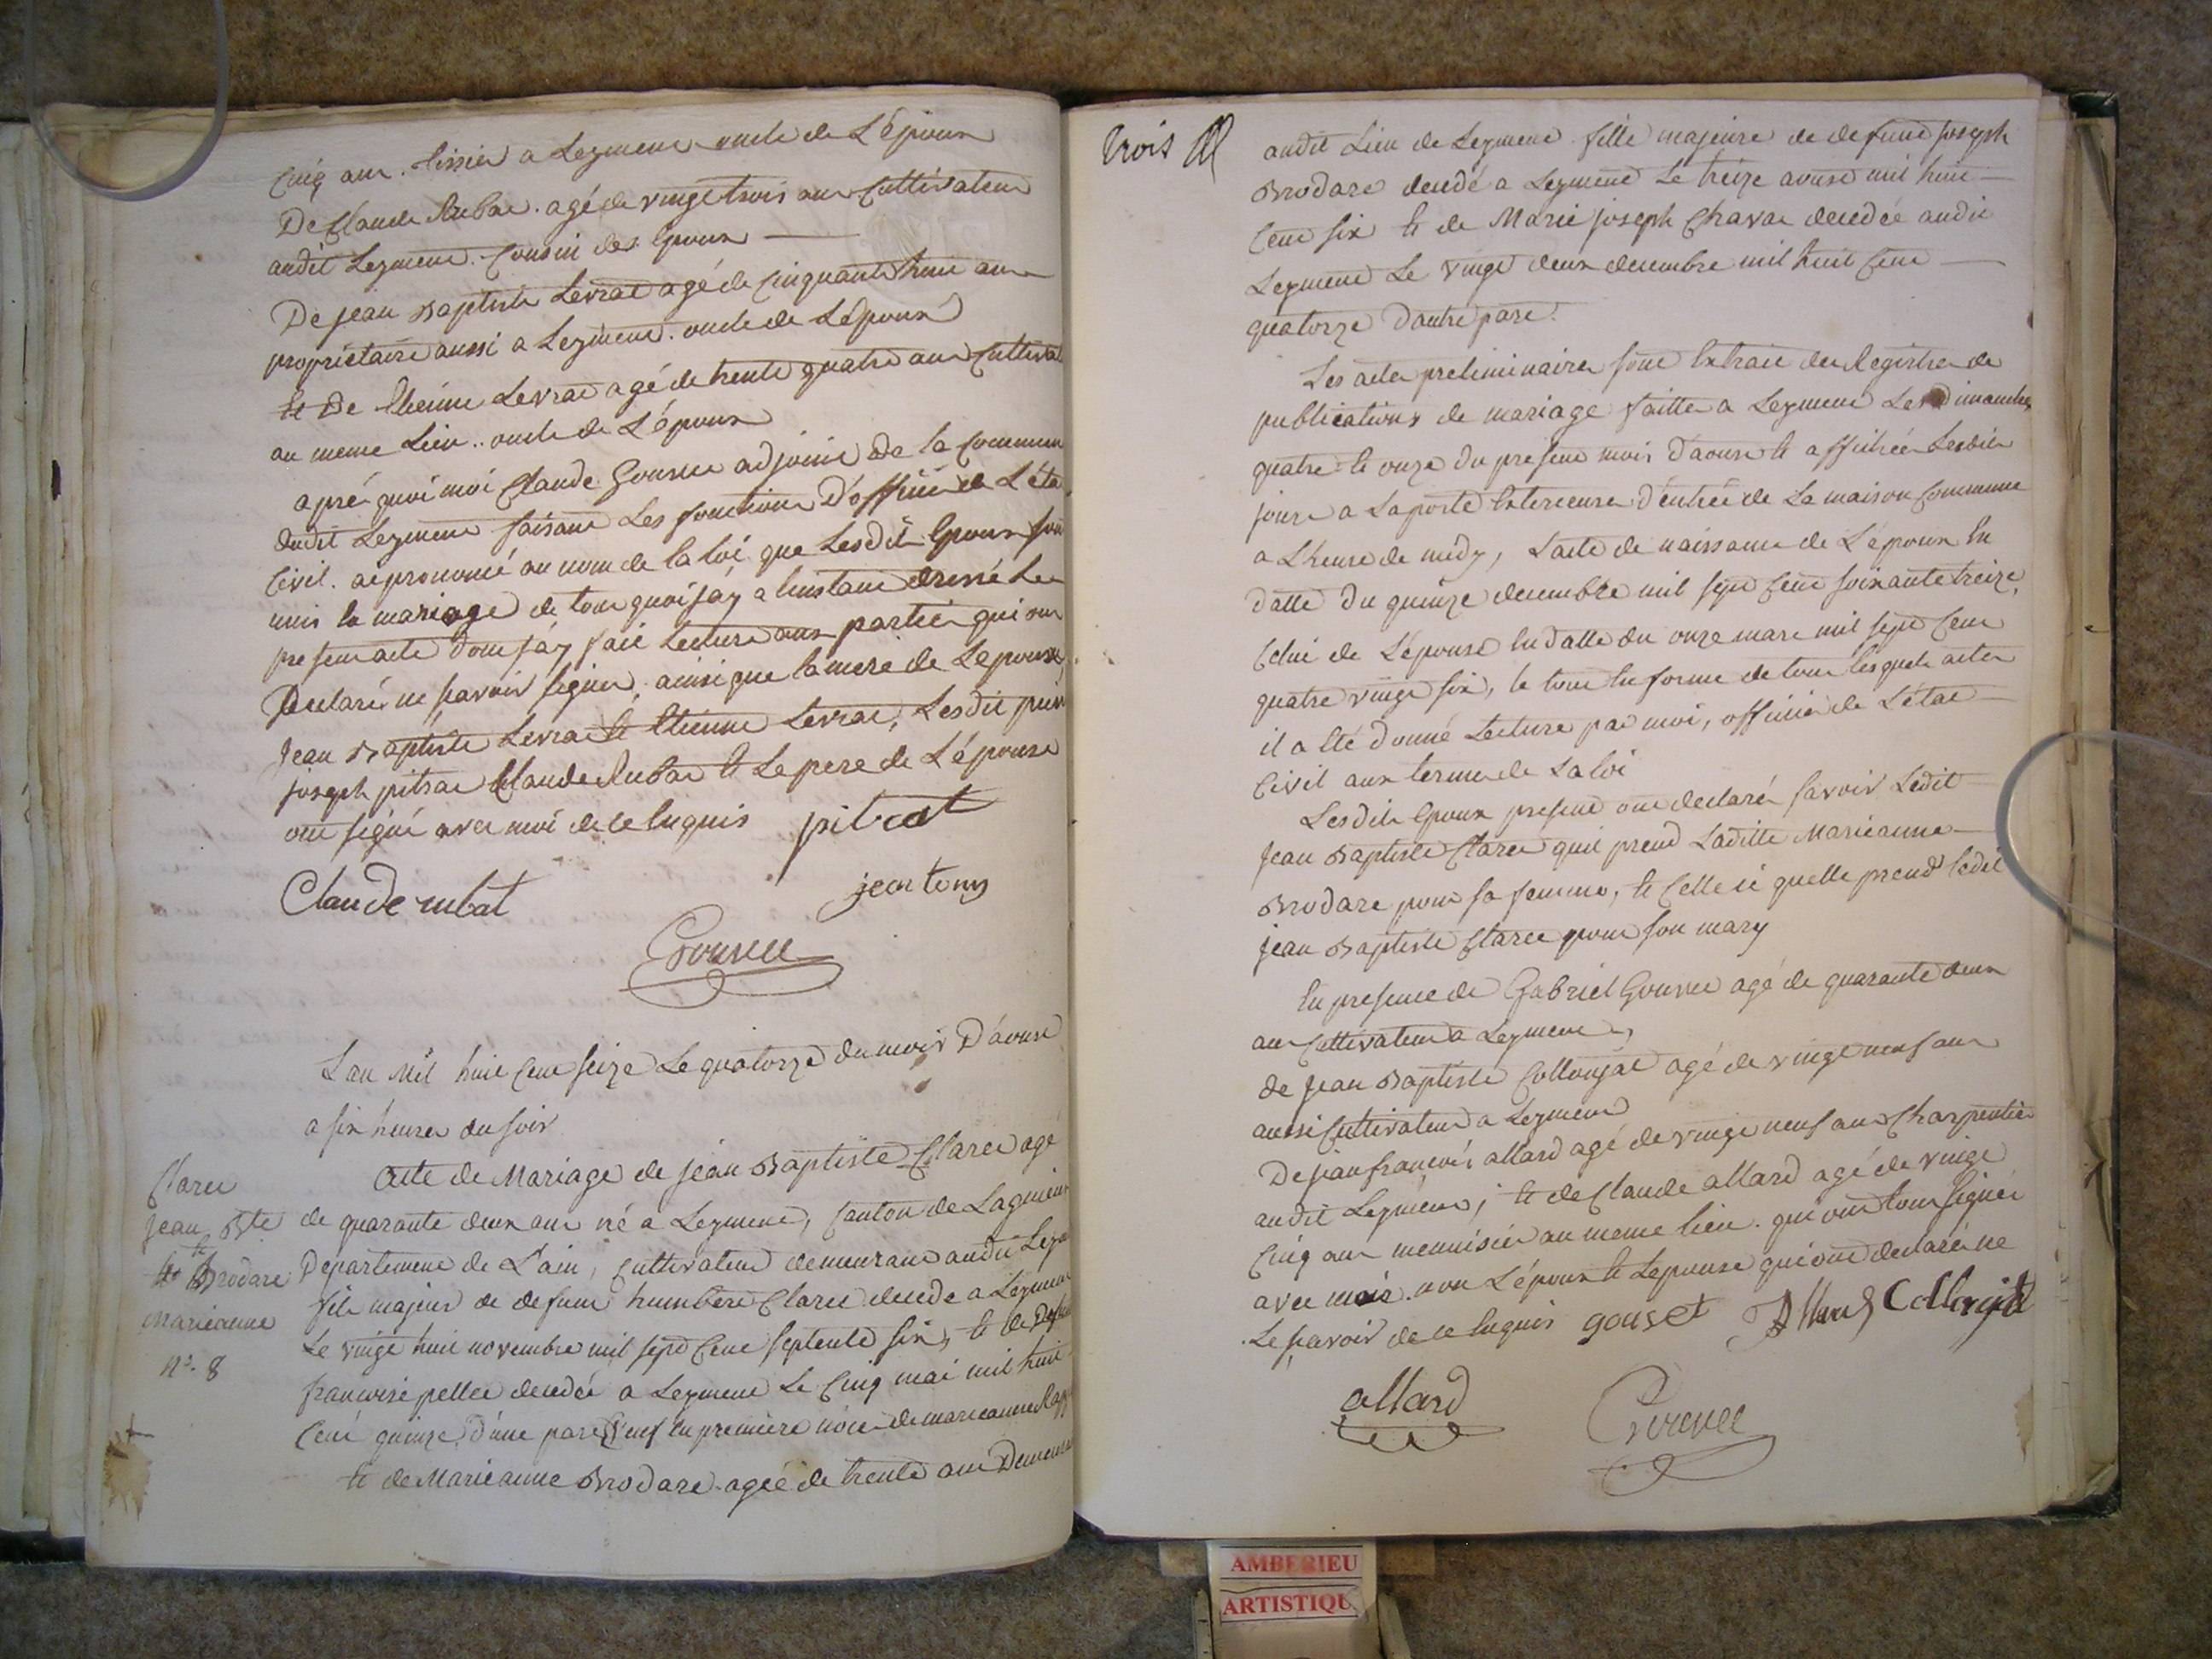 Cinq ans. tissier a Leymene oncle de L'époux
De Claude Rubat. agé de vingt trois ans Cultivateur
audit Leymene. Cousin des Epoux
De jean Baptiste Levrat agé de Cinquante huit ans
propriétaire aussi a Leymene. oncle de L'époux
et De Etienne Levrat agé de trente quatre ans Cultivat
au meme Lieu.. oncle de L'époux
aprés quoi moi Claude Gouvet adjoint De la Commune
dudit Leymene faisant Les fonctions D'officier de L'éta
Civil. ai prononcé au nom de la Loi que Lesdits Epoux son
unis En mariage de tout quoi j'ay a l'instant dressé Le
present acte dont j'ay fait Lecture aux parties qui ont
Declaré ne savoir signer, ainsi que la mere de L'epouse,
Jean Baptiste Levrat et Etienne Levrat, Lesdits
joseph pitrat Claude Rubat et Le pere de L'épouse
ont signé avec moi de ce Enquis pitrat
Claude rubat jean
Gouvet
L'an Mil huit Cent seize Le quatorze du mois D'aoust
a six heures du soir
Acte de Mariage de jean Baptiste Claret agé
de quarante deux ans né a Leymene, Canton de Lagnieu
Departement de L'ain, Cultivateur demeurant audit Leym
fils majeur de defunt humbert Claret decedé a Leymene
Le vingt huit novembre mil sept Cent septente six, et de Defun
francoise pellet decedée a Leymene Le Cinq mai mil huit
Cent quinze, d'une part Veuf En premiere noce de marieanne
et de Marieanne Brodard agée de trente ans Demeura
Claret
Jean Bte
et Brodard
Marieanne
n°. 8
trois
audit Lieu de Leymene fille majeure de defunt joseph
Brodard decedé a Leymene Le treize aoust mil huit
Cent six et de Marie joseph Chavat decedée audit
Leymene Le vingt deux decembre mil huit Cent
quatorze D'autre part.
Les actes preliminaires sont Extrait des Registres de
publications de mariage faitte a Leymene Les Dimanches
quatre et onze du present mois d'aoust et affichées Lesdits
jours a La porte Exterieure d'entrée de La maison Commune
a L'heure de midy, L'acte de naissance de L'époux En
datte du quinze decembre mil sept Cent soixante treize,
Celui de L'épouse En datte du onze mars mil sept Cent
quatre vingt six, le tout En forme de tous lesquels actes
il a Eté donné Lecture par moi, officier de L'état
Civil aux termes de La Loi
Lesdits Epoux present ont declaré savoir Ledit
Jean Baptiste Claret qu'il prend Laditte Marieanne
Brodard pour sa femme, et Celle ci qu'elle prend ledit
jean Baptiste Claret pour son mary
En presence de Gabriel Gouvet agé de quarante deux
ans Cultivateur a Leymene,
de Jean Baptiste Collonjat agé de vingt neuf ans
aussi Cultivateur a Leymene
De jean francois allard agé de vingt neuf ans Charpentier
audit Leymene; et de Claude allard agé de vingt
Cinq ans menuisier au meme lieu. qui ont tous signés
avec moi. non L'époux et L'epouse qui ont declaré ne
Le savoir de ce Enquis gouset Allard Collonjat
allard
Gouvet
AMBERIEU
ARTISTIQU